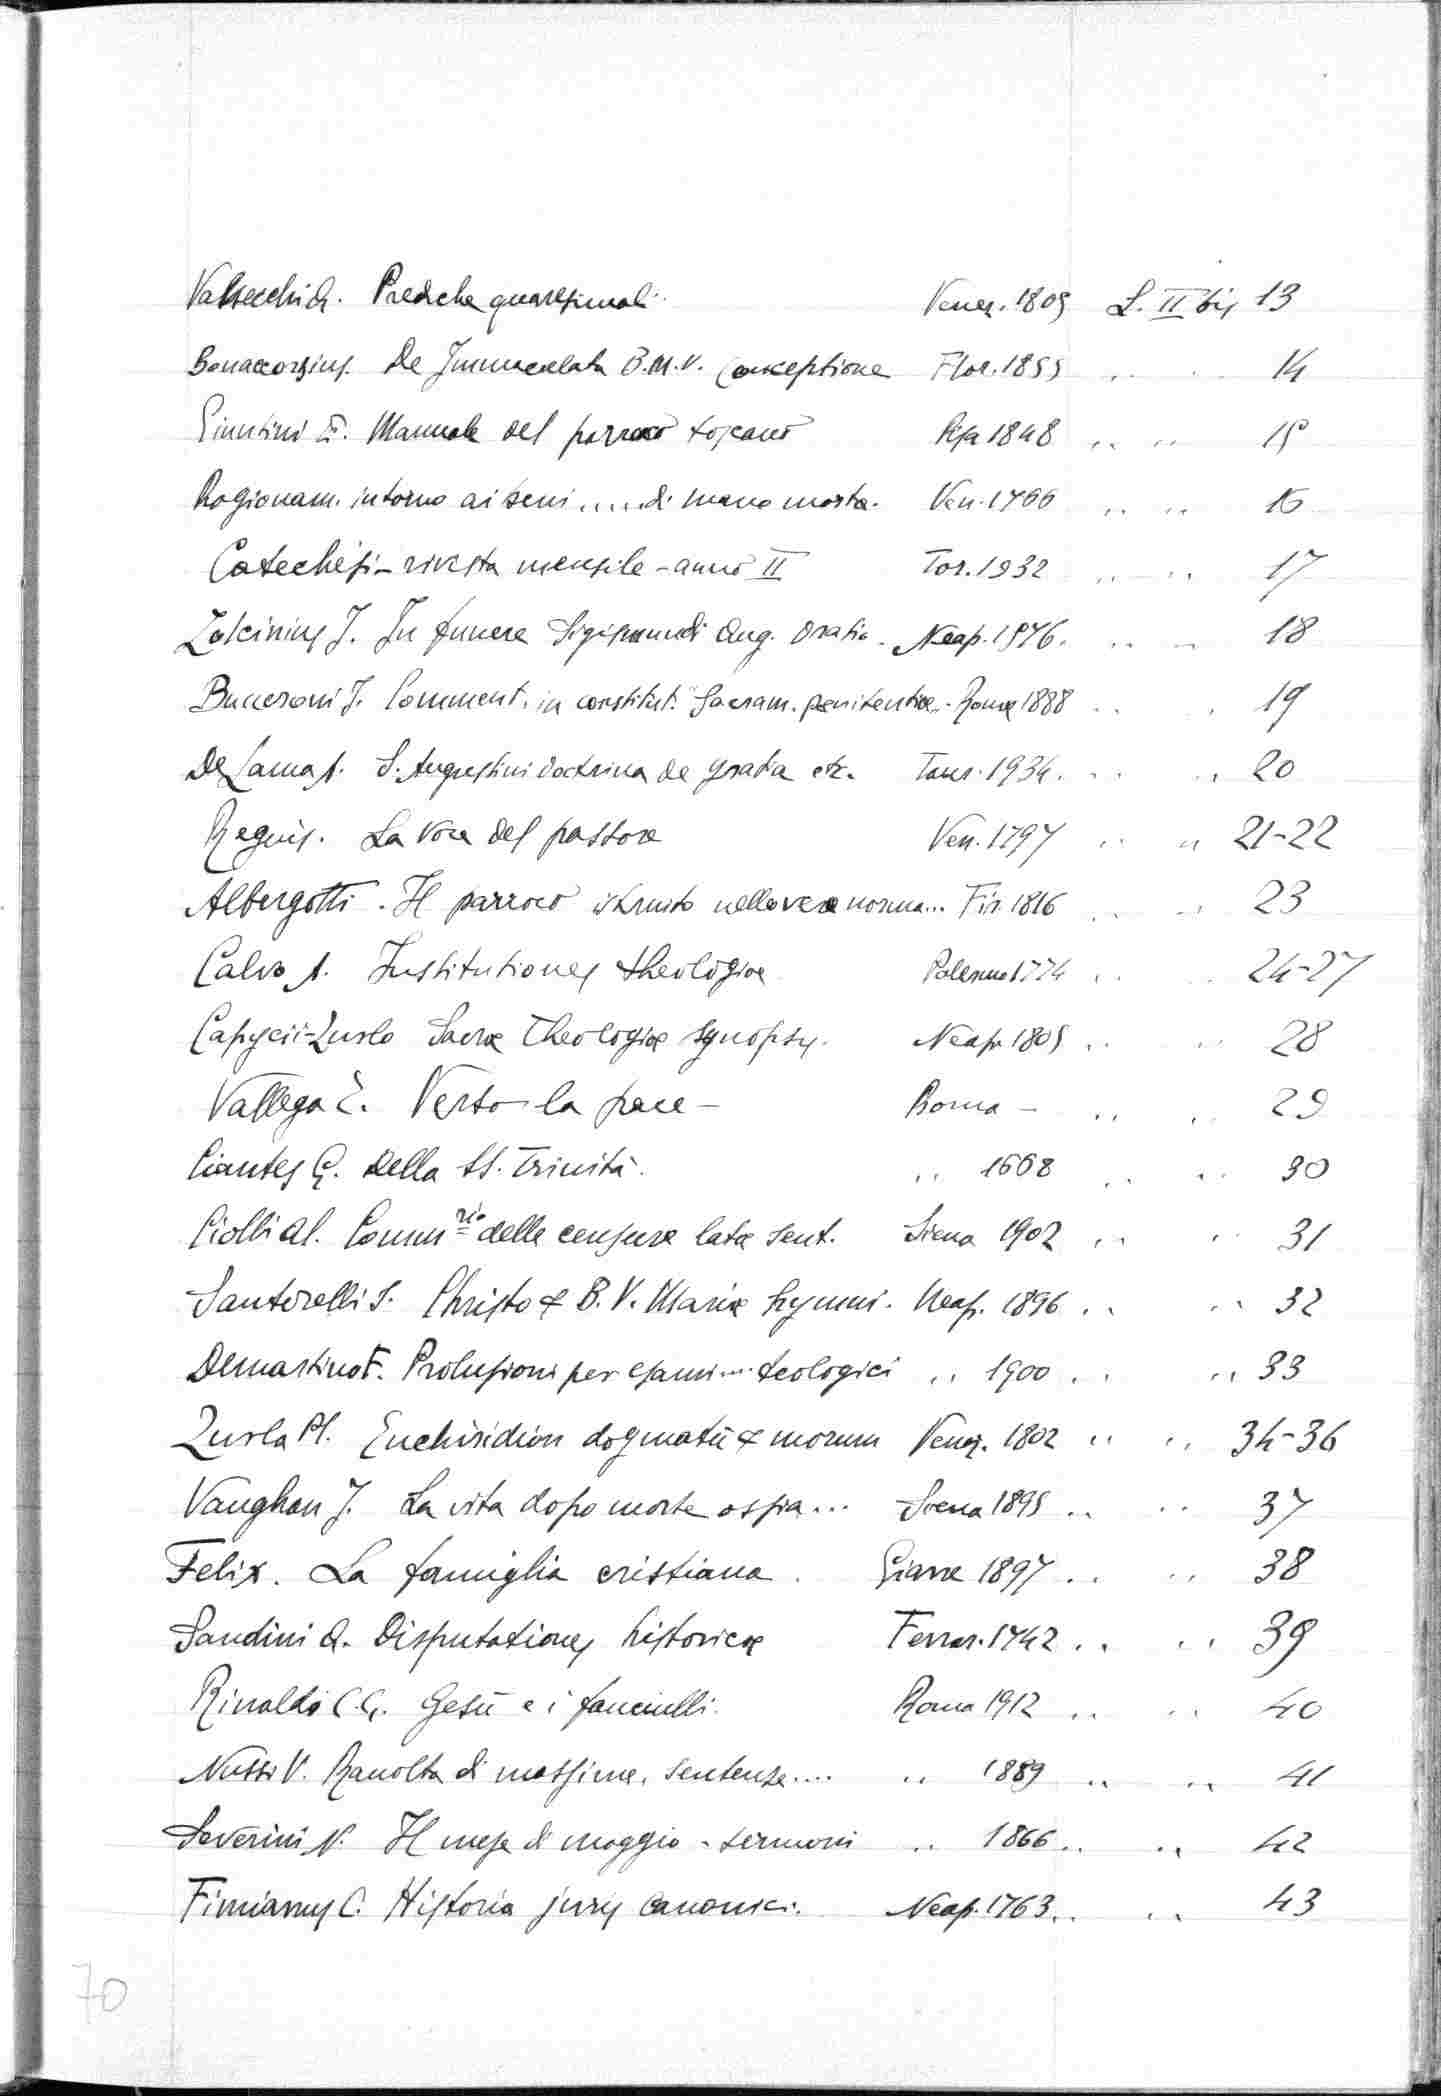 Valsecchi A. Prediche quaresimali. Venez. 1805 L. II bis 13
Bonaccorsius. De Immaculata B.M.V. Conceptione Flor. 1855 .. .. 14
Giuntini F. Manuale del parroco toscano Pisa 1848 .. .. 15
Ragionam. intorno ai beni ..... di mano morta. Ven. 1766 .. .. 16
Catechesi - rivista mensile - anno II Tor. 1932 .. .. 17
J. In funere Sigismundi Aug. Oratio. Neap. 1576. .. .. 18
Bucceroni J. Comment. in constitut. "Sacram. penitentiæ". Romæ 1888 .. .. 19
De Lama A. S. Augustini doctrina de gratia etc. Taur. 1934. .. .. 20
Reguis. La voce del pastore Ven. 1797 .. .. 21-22
Albergotti. Il parroco istruito nella vera norma... Fir. 1816 .. .. 23
Calvo A. Institutiones theologiæ Palermo 1774 .. .. 24-27
Capycii-Zurlo Sacræ Theologiæ synopsis. Neap. 1805 .. .. 28
Vallega E. Verso la pace - Roma - .. .. 29
Ciantes G. Della SS. Trinità. .. 1668 .. .. 30
Ciolli Al. Comm.rio delle censure latæ sent. Siena 1902 .. .. 31
Santorelli S. Christo & B. V. Mariæ hymni. Neap. 1896 .. .. 32
Demartino F. Prolusioni per esami ... teologici .. 1900 .. .. 33
Zurla Pl. Enchiridion dogmatū & morum Venez. 1802 .. .. 34-36
Vaughan J. La vita dopo morte ossia ... Siena 1895 .. .. 37
Felix. La famiglia cristiana. Giarre 1897 .. .. 38
Sandini A. Disputationes historicæ Ferrar. 1742 .. .. 39
Rinaldi C.G. Gesù e i fanciulli. Roma 1912 .. .. 40
Nussi V. Raccolta di massime, sentenze.... .. 1889 .. .. 41
Severini N. Il mese di maggio - sermoni .. 1866 .. .. 42
Fimianus C. Historia juris canonici. Neap. 1763 .. .. 43
70